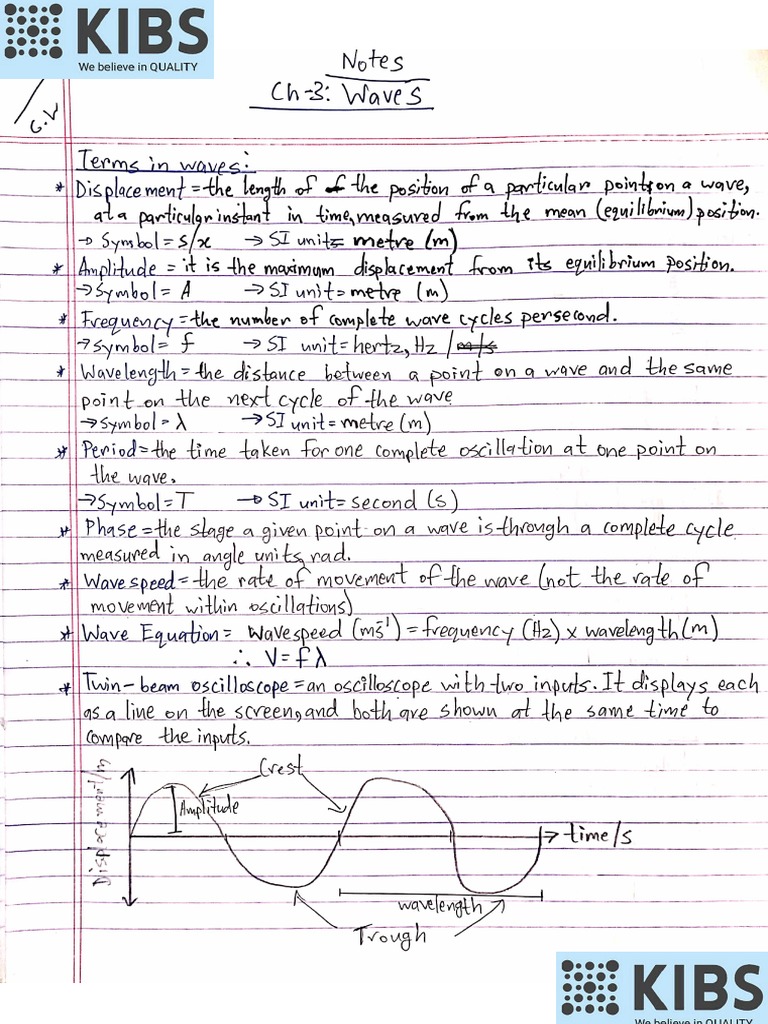 KIBS
We believe in QUALITY
Notes
Ch-3: Waves
G.W
Terms in waves:
* Displacement = the length of the position of a particular points on a wave,
at a particular instant in time, measured from the mean (equilibrium) position.
→ Symbol = s/x → SI unit = metre (m)
* Amplitude = it is the maximum displacement from its equilibrium position.
→ Symbol = A → SI unit = metre (m)
* Frequency = the number of complete wave cycles per second.
→ Symbol = f → SI unit = hertz, Hz / m/s
* Wavelength = the distance between a point on a wave and the same
point on the next cycle of the wave
→ Symbol = λ → SI unit = metre (m)
* Period = the time taken for one complete oscillation at one point on
the wave.
→ Symbol = T → SI unit = second (s)
* Phase = the stage a given point on a wave is through a complete cycle
measured in angle units, rad.
* Wave speed = the rate of movement of the wave (not the rate of
movement within oscillations)
* Wave Equation = wavespeed (ms⁻¹) = frequency (Hz) x wavelength (m)
∴ V = f λ
* Twin-beam oscilloscope = an oscilloscope with two inputs. It displays each
as a line on the screen, and both are shown at the same time to
compare the inputs.
Crest
Amplitude
Displacement/m
→ time/s
wavelength
Trough
KIBS
We believe in QUALITY